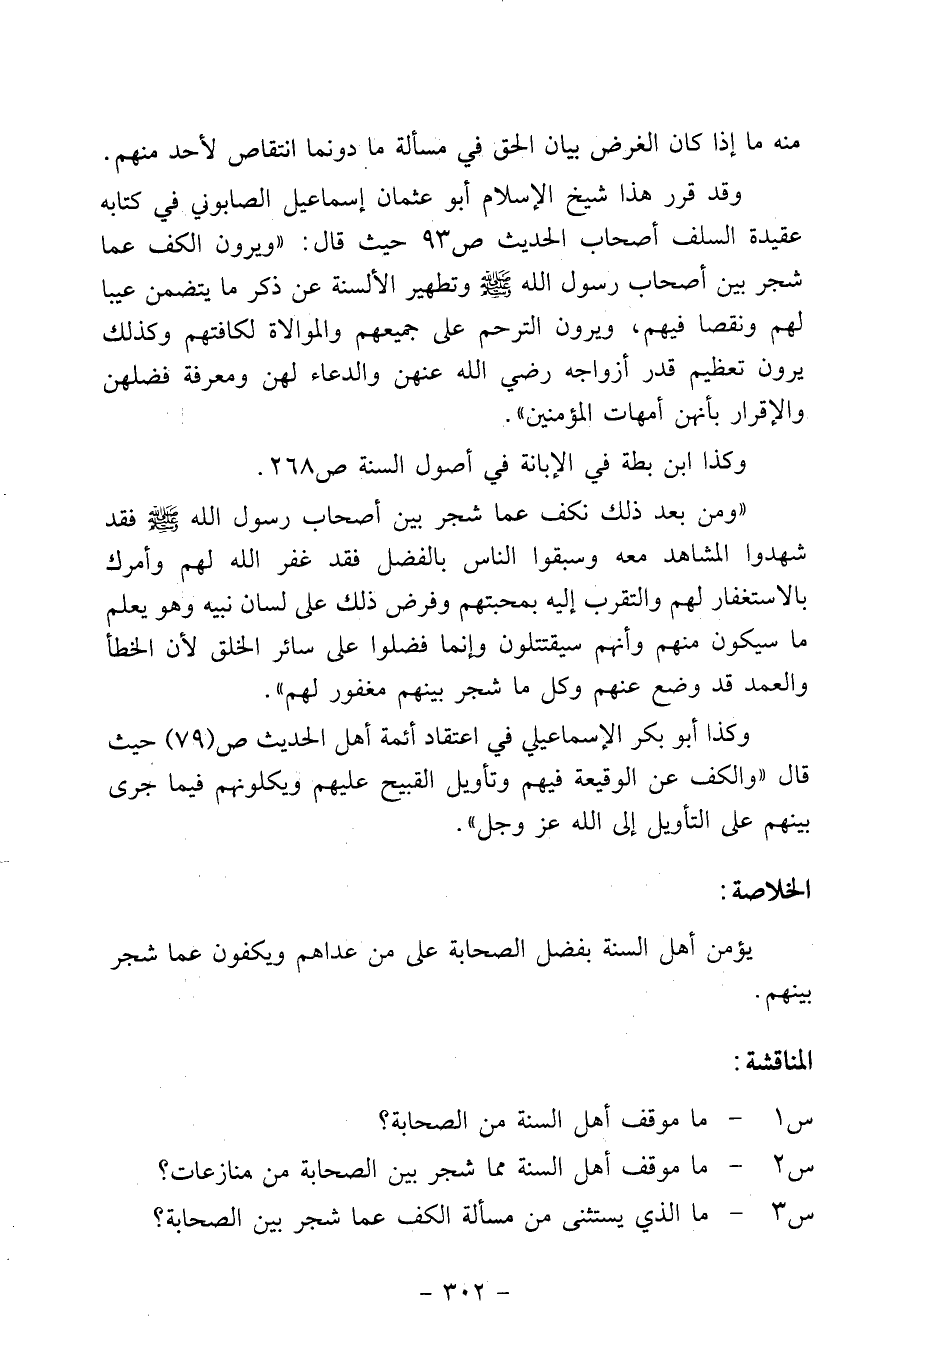 منه ما إذا كان الغرض بيان الحق في مسألة ما دونما انتقاص لأحد منهم.
وقد قرر هذا شيخ الإسلام أبو عثمان إسماعيل الصابوني في كتابه
عقيدة السلف أصحاب الحديث ص٩٣ حيث قال: «ويرون الكف عما
شجر بين أصحاب رسول الله ﷺ وتطهير الألسنة عن ذكر ما يتضمن عيبا
لهم ونقصا فيهم، ويرون الترحم على جميعهم والموالاة لكافتهم وكذلك
يرون تعظيم قدر أزواجه رضي الله عنهن والدعاء لهن ومعرفة فضلهن
والإقرار بأنهن أمهات المؤمنين».
وكذا ابن بطة في الإبانة في أصول السنة ص٢٦٨.
«ومن بعد ذلك نكف عما شجر بين أصحاب رسول الله ﷺ فقد
شهدوا المشاهد معه وسبقوا الناس بالفضل فقد غفر الله لهم وأمرك
بالاستغفار لهم والتقرب إليه بمحبتهم وفرض ذلك على لسان نبيه وهو يعلم
ما سيكون منهم وأنهم سيقتتلون وإنما فضلوا على سائر الخلق لأن الخطأ
والعمد قد وضع عنهم وكل ما شجر بينهم مغفور لهم».
وكذا أبو بكر الإسماعيلي في اعتقاد أئمة أهل الحديث ص(٧٩) حيث
قال «والكف عن الوقيعة فيهم وتأويل القبيح عليهم ويكلونهم فيما جرى
بينهم على التأويل إلى الله عز وجل».
الخلاصة:
يؤمن أهل السنة بفضل الصحابة على من عداهم ويكفون عما شجر
بينهم.
المناقشة:
س١ - ما موقف أهل السنة من الصحابة؟
س٢ - ما موقف أهل السنة مما شجر بين الصحابة من منازعات؟
س٣ - ما الذي يستثنى من مسألة الكف عما شجر بين الصحابة؟
- ٣٠٢ -